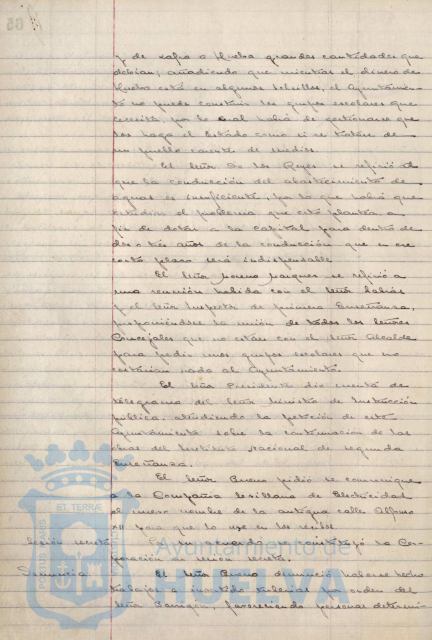 y de Zafra a Huelva grandes cantidades que
debian; añadiendo que mientras el dinero de
Huelva está en algunos bolsillos, el Ayuntamien-
to no puede construir los grupos escolares que
necesita, por lo cual habrá de gestionarse que
los haga el Estado como si se tratase de
un pueblo carente de medios.
El Señor de los Reyes se refirió a
que la conducción del abastecimiento de
aguas es insuficiente, por lo que habrá que
estudiar el problema que esto plantea, a
fin de dotar a la capital para dentro de
dos o tres años de la conducción que en ese
corto plazo será indispensable.
El Señor Moreno Marquez se refirió a
una reunión habida con el Señor
y el Señor Inspector de primera Enseñanza,
proponiéndose la unión de todos los Señores
Concejales que no están con el Señor Alcalde
para pedir unos grupos escolares que no
costarian nada al Ayuntamiento.
El Señor Presidente dio cuenta de
telegrama del Señor Ministro de Instrucción
pública, atendiendo la petición de este
Ayuntamiento sobre la continuación de las
obras del Instituto Nacional de segunda
Enseñanza.
El Señor Bueno pidió se comunique
a la Compañia Sevillana de Electricidad
el nuevo nombre de la antigua calle Alfonso
XII para que lo use en los recibos.
Sesión secreta
se constituyó la Cor-
poración en sesión secreta.
Denuncia
El Señor Bueno denunció haberse hecho
trabajos a
por orden del
Señor Barrigón, favoreciendo personal determi-
PORTUS MARIS ET TERRAE CUSTODIA
Ayuntamiento de
HUELVA